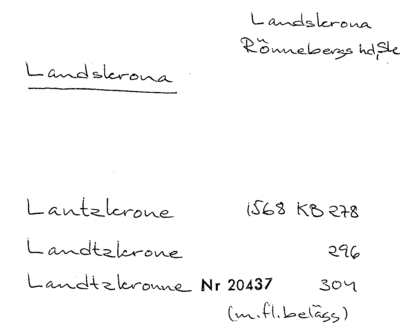 Landskrona
Rönnebergs hd, Sk
Landskrona
Lantzkrone 1568 KB 278
Landtzkrone 296
Landtzkronne Nr 20437 304
(m.fl. belägg)